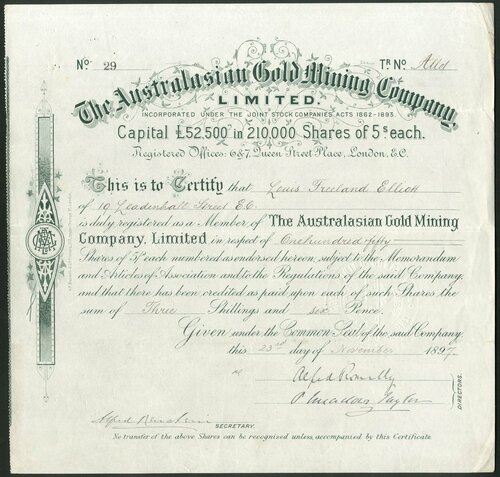 No. 29 TR No. Allot
The Australasian Gold Mining Company,
LIMITED.
INCORPORATED UNDER THE JOINT STOCK COMPANIES ACTS 1862-1893.
Capital £52,500 in 210,000 Shares of 5s each.
Registered Offices: 6&7, Queen Street Place, London, E.C.
This is to Certify that Louis Freeland Elliott
of 19 Leadenhall Street E.C.
is duly registered as a Member of The Australasian Gold Mining
Company, Limited in respect of One hundred fifty
Shares of 5/- each numbered as endorsed hereon, subject to the Memorandum
and Articles of Association and to the Regulations of the said Company,
and that there has been credited as paid upon each of such Shares the
sum of Three Shillings and six Pence.
Given under the Common Seal of the said Company
this 23rd day of November 1897.
Alfred
Taylor
DIRECTORS.
Alfred
SECRETARY.
No transfer of the above Shares can be recognised unless accompanied by this Certificate.